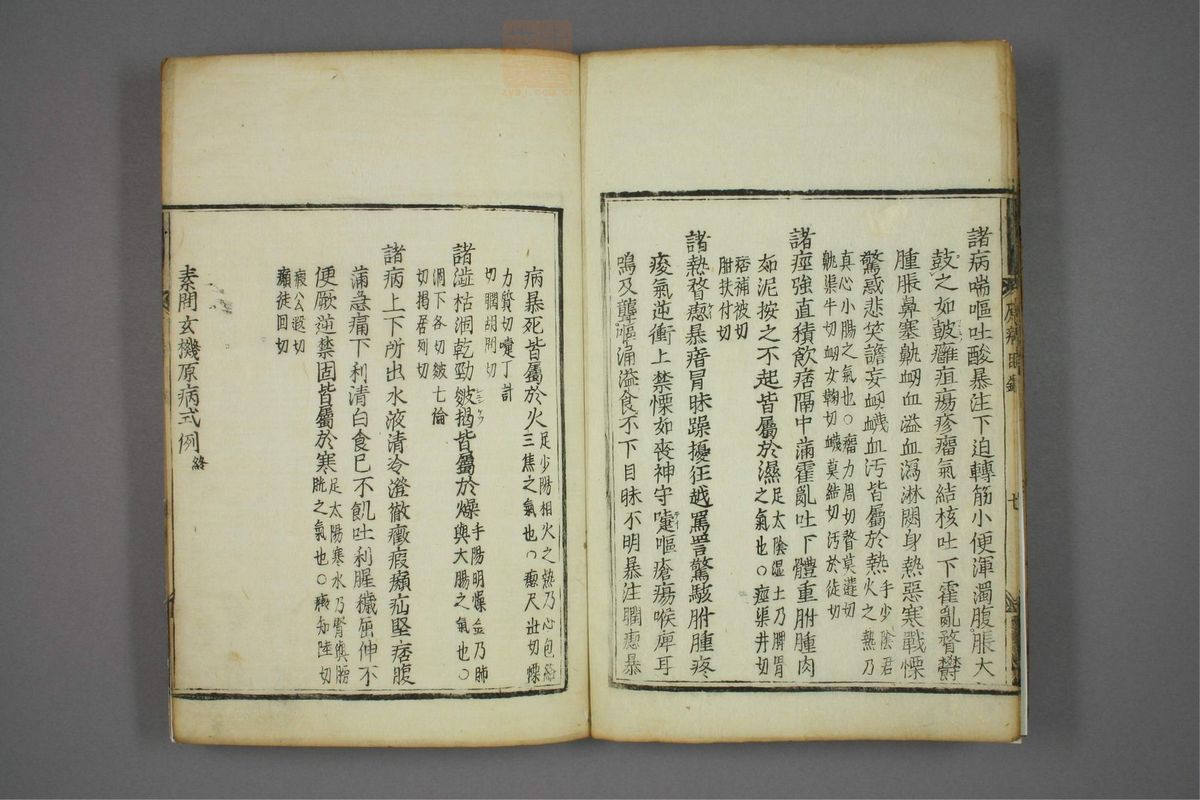 諸病喘嘔吐酸暴注下迫轉筋小便渾濁腹脹大
鼓之如皷癰疽瘍疹瘤氣結核吐下霍亂瞀鬱
腫脹鼻塞鼽衂血溢血瀉淋閟身熱惡寒戰慄
驚惑悲笑譫妄衂衊血汚皆屬於熱手少陰君火之熱乃
真心小腸之氣也○瘤力周切瞀莫遘切
鼽渠牛切衂女鞠切衊莫結切汚於徒切
諸痙強直積飲痞隔中滿霍亂吐下體重胕腫肉
如泥按之不起皆屬於濕足太陰湿土乃脾胃之氣也○痙渠井切
痞補被切
胕扶付切
諸熱瞀瘛暴瘖冒昧躁擾狂越罵詈驚駭胕腫疼
痠氣逆衝上禁慄如喪神守嚏嘔瘡瘍喉痺耳
鳴及聾嘔涌溢食不下目昧不明暴注瞤瘛暴
七
病暴死皆屬於火足少陽相火之熱乃心包絡三焦之氣也○瘛尺世切慄
力質切嚏丁計
切瞤胡閏切
諸澁枯涸乾勁皴揭皆屬於燥手陽明燥金乃肺與大腸之氣也○
涸下各切皴七倫
切揭居列切
諸病上下所出水液清冷澄徹癥瘕㿗疝堅痞腹
滿急痛下利清白食已不飢吐利腥穢屈伸不
便厥逆禁固皆屬於寒足太陽寒水乃腎與膀胱之氣也○癥知陸切
瘕公遐切
㿗徒回切
素問玄機原病式例終